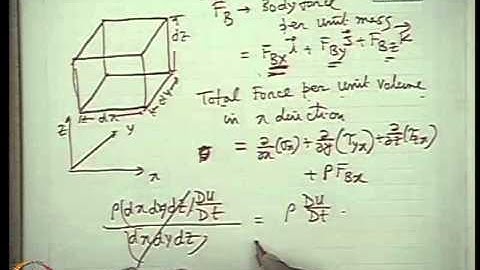 F_B → Body force
per unit mass
= F_Bx i + F_By j + F_Bz k
Total Force per unit volume
in x direction
= ∂/∂x (σx) + ∂/∂y (τyx) + ∂/∂z (τzx)
+ ρ F_Bx
ρ(dx dy dz) DU/Dt / (dx dy dz) = ρ DU/Dt
dz
dx
dy
z
y
x